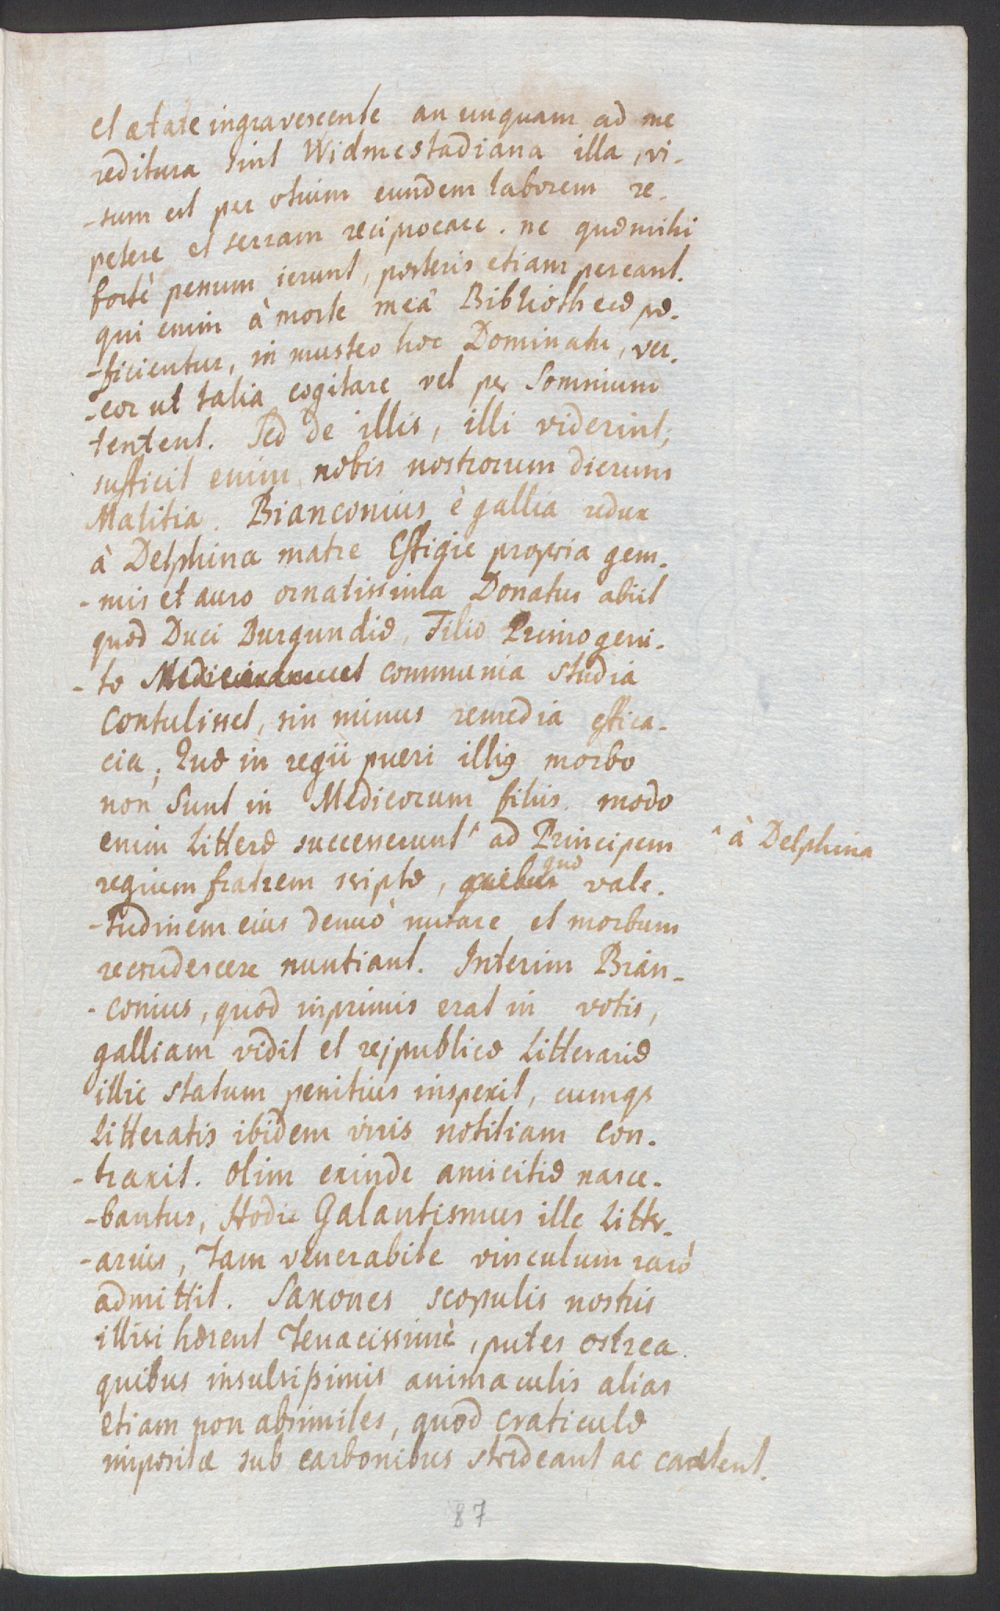 et ætate ingravescente an unquam ad me
reditura sint Widmestadiana illa, vi-
-sum est per otium eundem laborem re-
petere et serram reciprocare. ne quæ mihi
fortè pessum ierunt, posteris etiam pereant.
qui enim à morte meâ Bibliothecæ præ-
-ficientur, in musteo hoc Dominatu, ver-
-eor ut talia cogitare vel per Somnium
tentent. Sed de illis, illi viderint;
sufficit enim nobis nostrorum dierum
Malitia. Bianconius è gallia redux
à Delphina matre Effigie propria gem-
-mis et auro ornatissima Donatus abiit
quod Duci Burgundiæ, Filio Primogeni-
-to communia studia
contulisset, sin minus remedia effica-
cia; Quæ in regii pueri illius morbo
non sunt in Medicorum filiis. modo
enim Litteræ successerunt ^ ad Principem ^ à Delphina
regium fratrem scriptæ, quibus quæ vale-
-tudinem eius denuò nutare et morbum
recrudescere nuntiant. Interim Bian-
-conius, quod inprimis erat in votis,
galliam vidit et reipublicæ Litterariæ
illic statum penitius inspexit, cumqs
Litteratis ibidem viris notitiam con-
-traxit. olim exinde amicitiæ nasce-
-bantur, Hodie Galantismus ille Litter-
-arius, Tam venerabile vinculum rarò
admittit. Saxones scopulis nostris
illisi hærent Tenacissimè, putes ostrea.
quibus insulsissimis animaculis alias
etiam non absimiles, quod craticulæ
impositæ sub carbonibus strideant ac
87